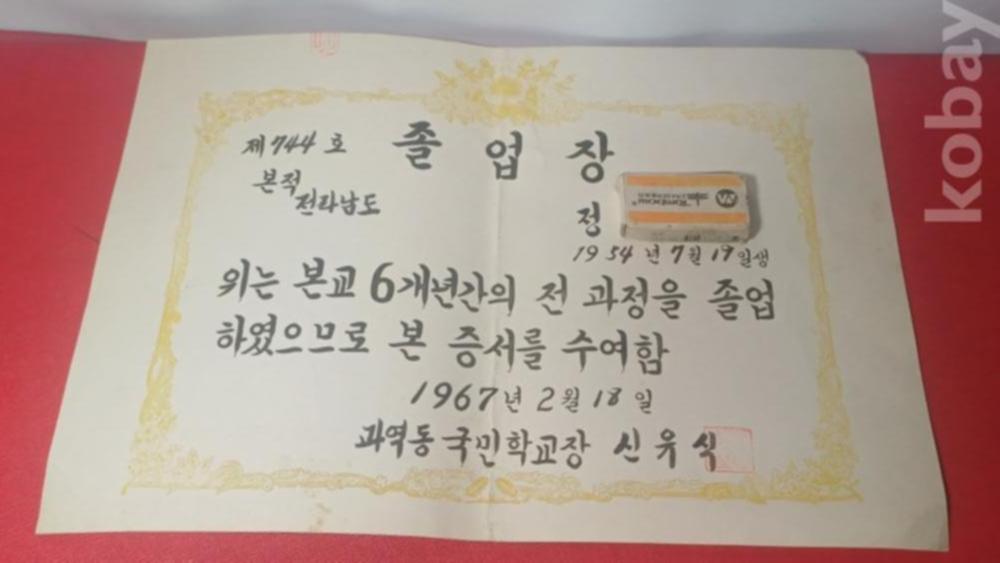 제744호 졸업장
본적
전라남도
정
1954년 7월 19일생
위는 본교 6개년간의 전 과정을 졸업
하였으므로 본 증서를 수여함
1967년 2월 18일
과역동국민학교장 신유식
kobay
Tombow